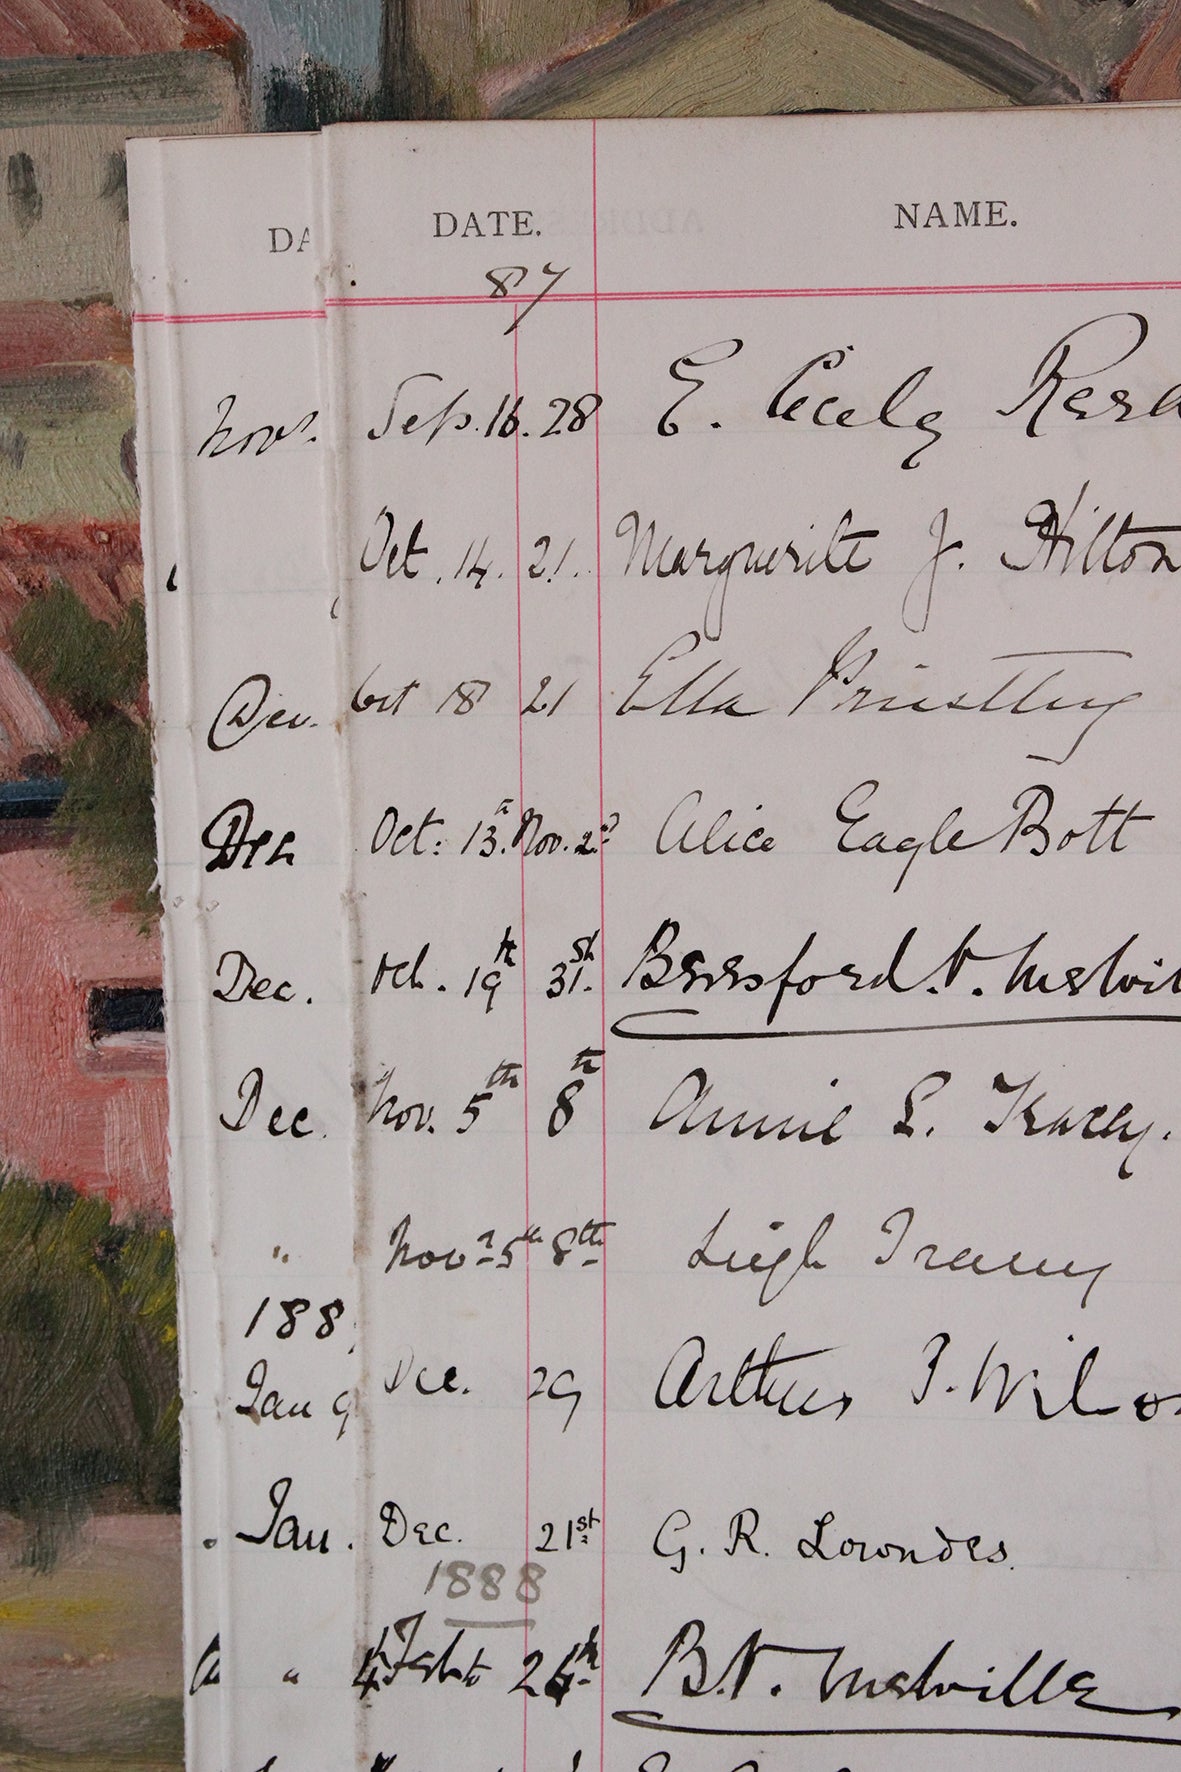 DATE. NAME.
87
Nov. Sep. 16. 28 E. Cicely
Oct. 14. 21. Marguerite J. Hilton
Dec. Oct 18 21 Ella Priestley
Dec Oct: 13. Nov. 2nd Alice Eagle Bott
Dec. Oct. 19th 31st Beresford. V. Melvil
Dec. Nov. 5th 8th Annie L. Tracey.
" Nov. 5th 8th Leigh Tracey
188
Jan 9 Dec. 29 Arthur
Jan. Dec. 21st G. R. Lowndes.
1888
" B.V. Melville